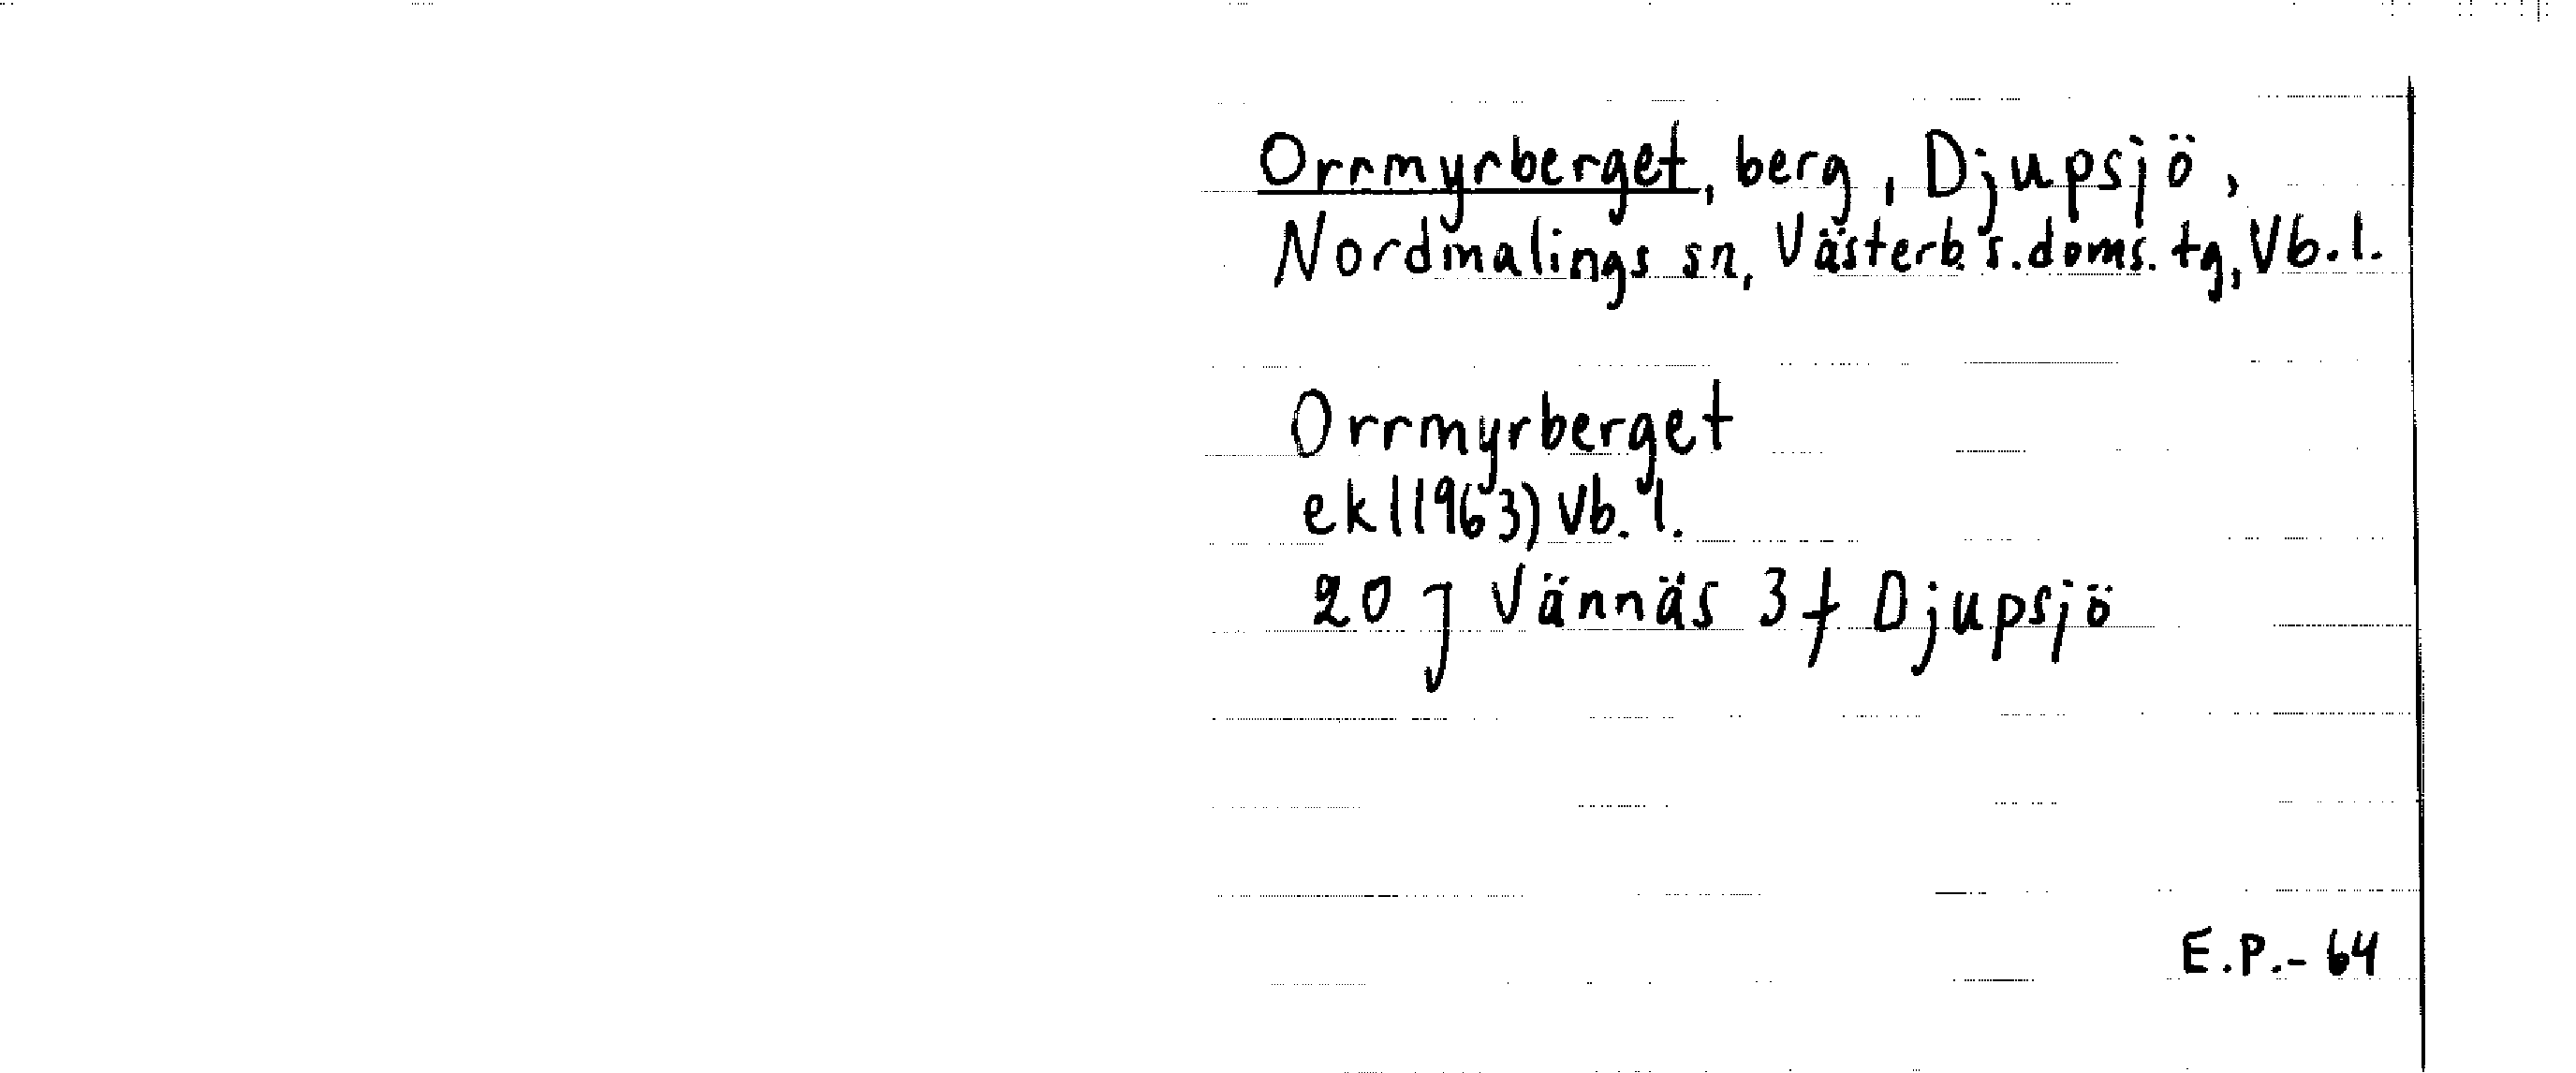 Orrmyrberget, berg, Djupsjö,
Nordmalings sn, Västerb. s. doms. tg, Vb. l.
Orrmyrberget
ek(1963) Vb. l.
20 J Vännäs 3 f Djupsjö
E.P.- 64